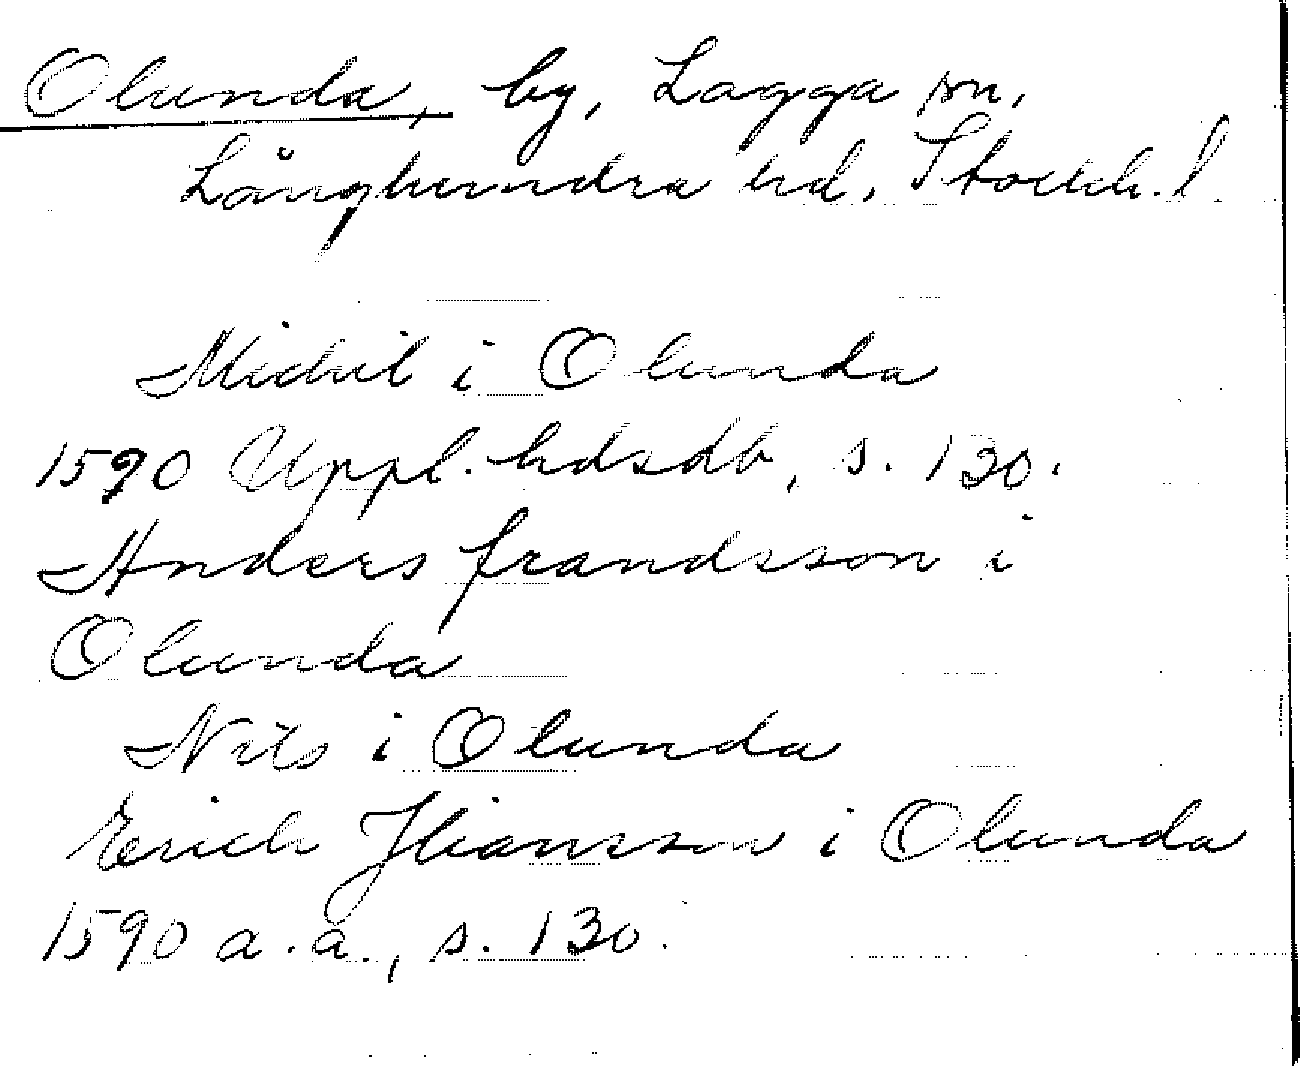 Olunda, by, Lagga sn,
Långhundra hd, Stockh. l.
Michil i Olunda
1590 Uppl. hdsdb, s. 130.
Anders frandsson i
Olunda
Nils i Olunda
Erich Jliansson i Olunda
1590 a.a., s. 130.